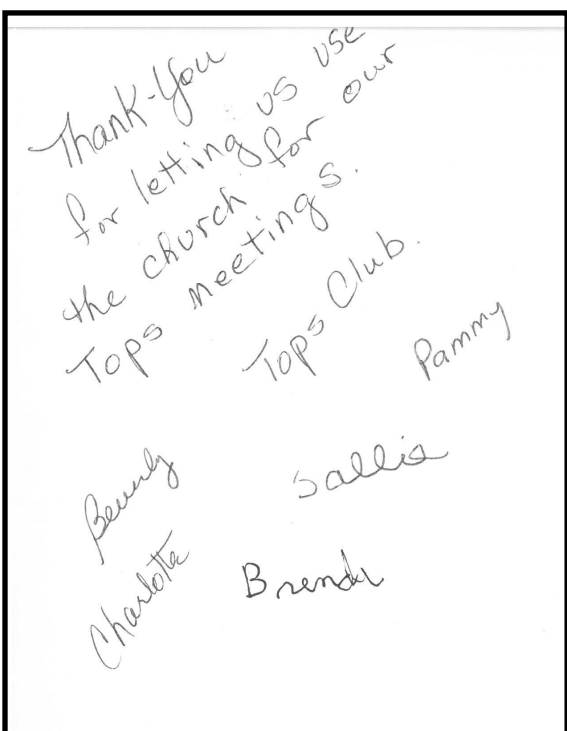 Thank-You
for letting us use
the church for our
Tops meetings.
Tops Club.
Pammy
Beverly
Sallie
Charlotte
Brenda